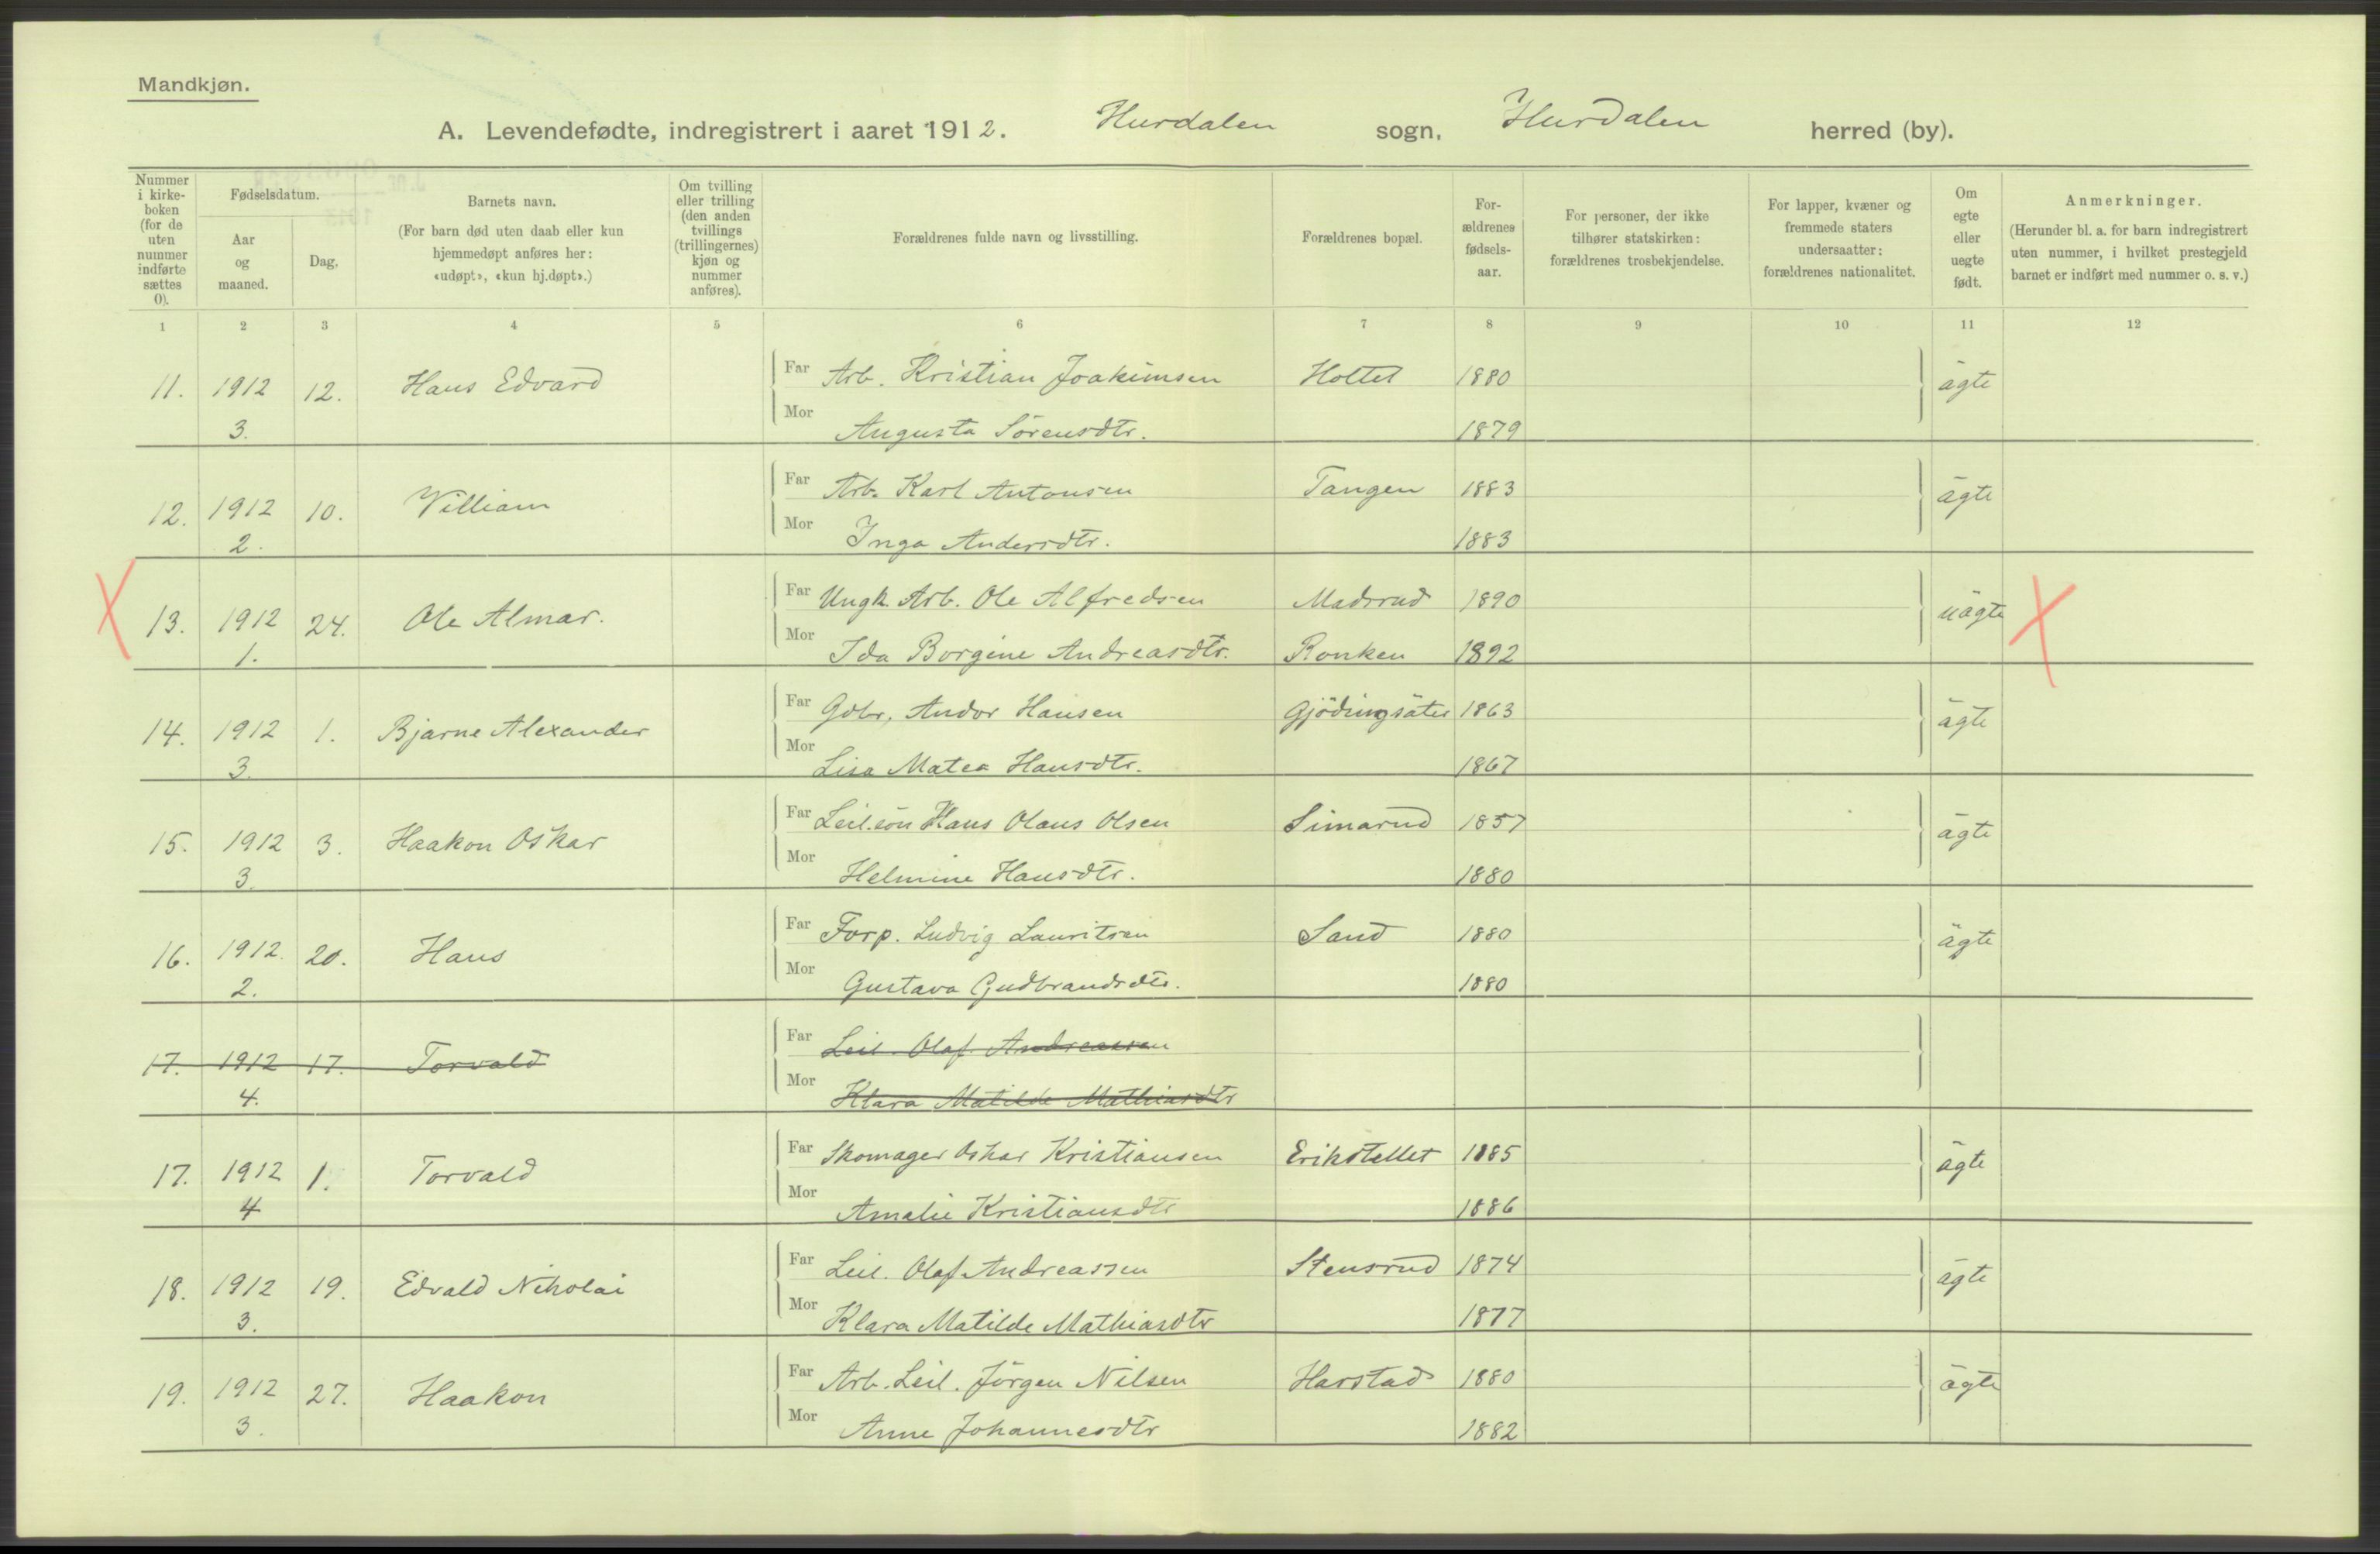 Mandkjøn.
A. Levendefødte, indregistrert i aaret 1912. Hurdalen sogn, Hurdalen herred (by).
Nummer i kirke-boken (for de uten nummer indførte sættes 0).
Fødselsdatum.
Aar og maaned.
Dag.
Barnets navn.
(For barn død uten daab eller kun hjemmedøpt anføres her: «udøpt», «kun hj.døpt».)
Om tvilling eller trilling (den anden tvillings (trillingernes) kjøn og nummer anføres).
Forældrenes fulde navn og livsstilling.
Forældrenes bopæl.
For-ældrenes fødsels-aar.
For personer, der ikke tilhører statskirken: forældrenes trosbekjendelse.
For lapper, kvæner og fremmede staters undersaatter: forældrenes nationalitet.
Om egte eller uegte født.
Anmerkninger.
(Herunder bl. a. for barn indregistrert uten nummer, i hvilket prestegjeld barnet er indført med nummer o. s. v.)
1 2 3 4 5 6 7 8 9 10 11 12
11. 1912 12. Hans Edvard Far Arb. Kristian Joakimsen Holtet 1880 ägte
3. Mor Augusta Sörensdtr. 1879
12. 1912 10. William Far Arb. Karl Antonsen Tangen 1883 ägte
2. Mor Inga Andersdtr. 1883
13. 1912 24. Ole Almar. Far Ungk. Arb. Ole Alfredsen Madsrud 1890 uägte
1. Mor Ida Borgine Andreasdtr. Ronken 1892
14. 1912 1. Bjarne Alexander Far Gdbr. Andor Hansen Gjödingsäter 1863 ägte
3. Mor Lisa Matea Hansdtr. 1867
15. 1912 3. Haakon Oskar Far Leil.sön Hans Olaus Olsen Simarud 1857 ägte
3. Mor Helmine Hansdtr. 1880
16. 1912. 20. Hans Far Forp. Ludvig Lauritsen Sand 1880 ägte
2. Mor Gustava Gudbrandsdtr. 1880
17. 1912 17. Torvald Far Leil. Olaf Andreassen
4. Mor Klara Matilde Mathiasdtr
17. 1912 1. Torvald Far Skomager Oskar Kristiansen Erikstellet 1885 ägte
4 Mor Amalie Kristiansdtr 1886
18. 1912 19. Edvald Nikolai Far Leil. Olaf Andreassen Stensrud 1874 ägte
3. Mor Klara Matilde Mathiasdtr 1877
19. 1912 27. Haakon Far Arb. Leil. Jörgen Nilsen Harstad 1880 ägte
3. Mor Anne Johannesdtr 1882